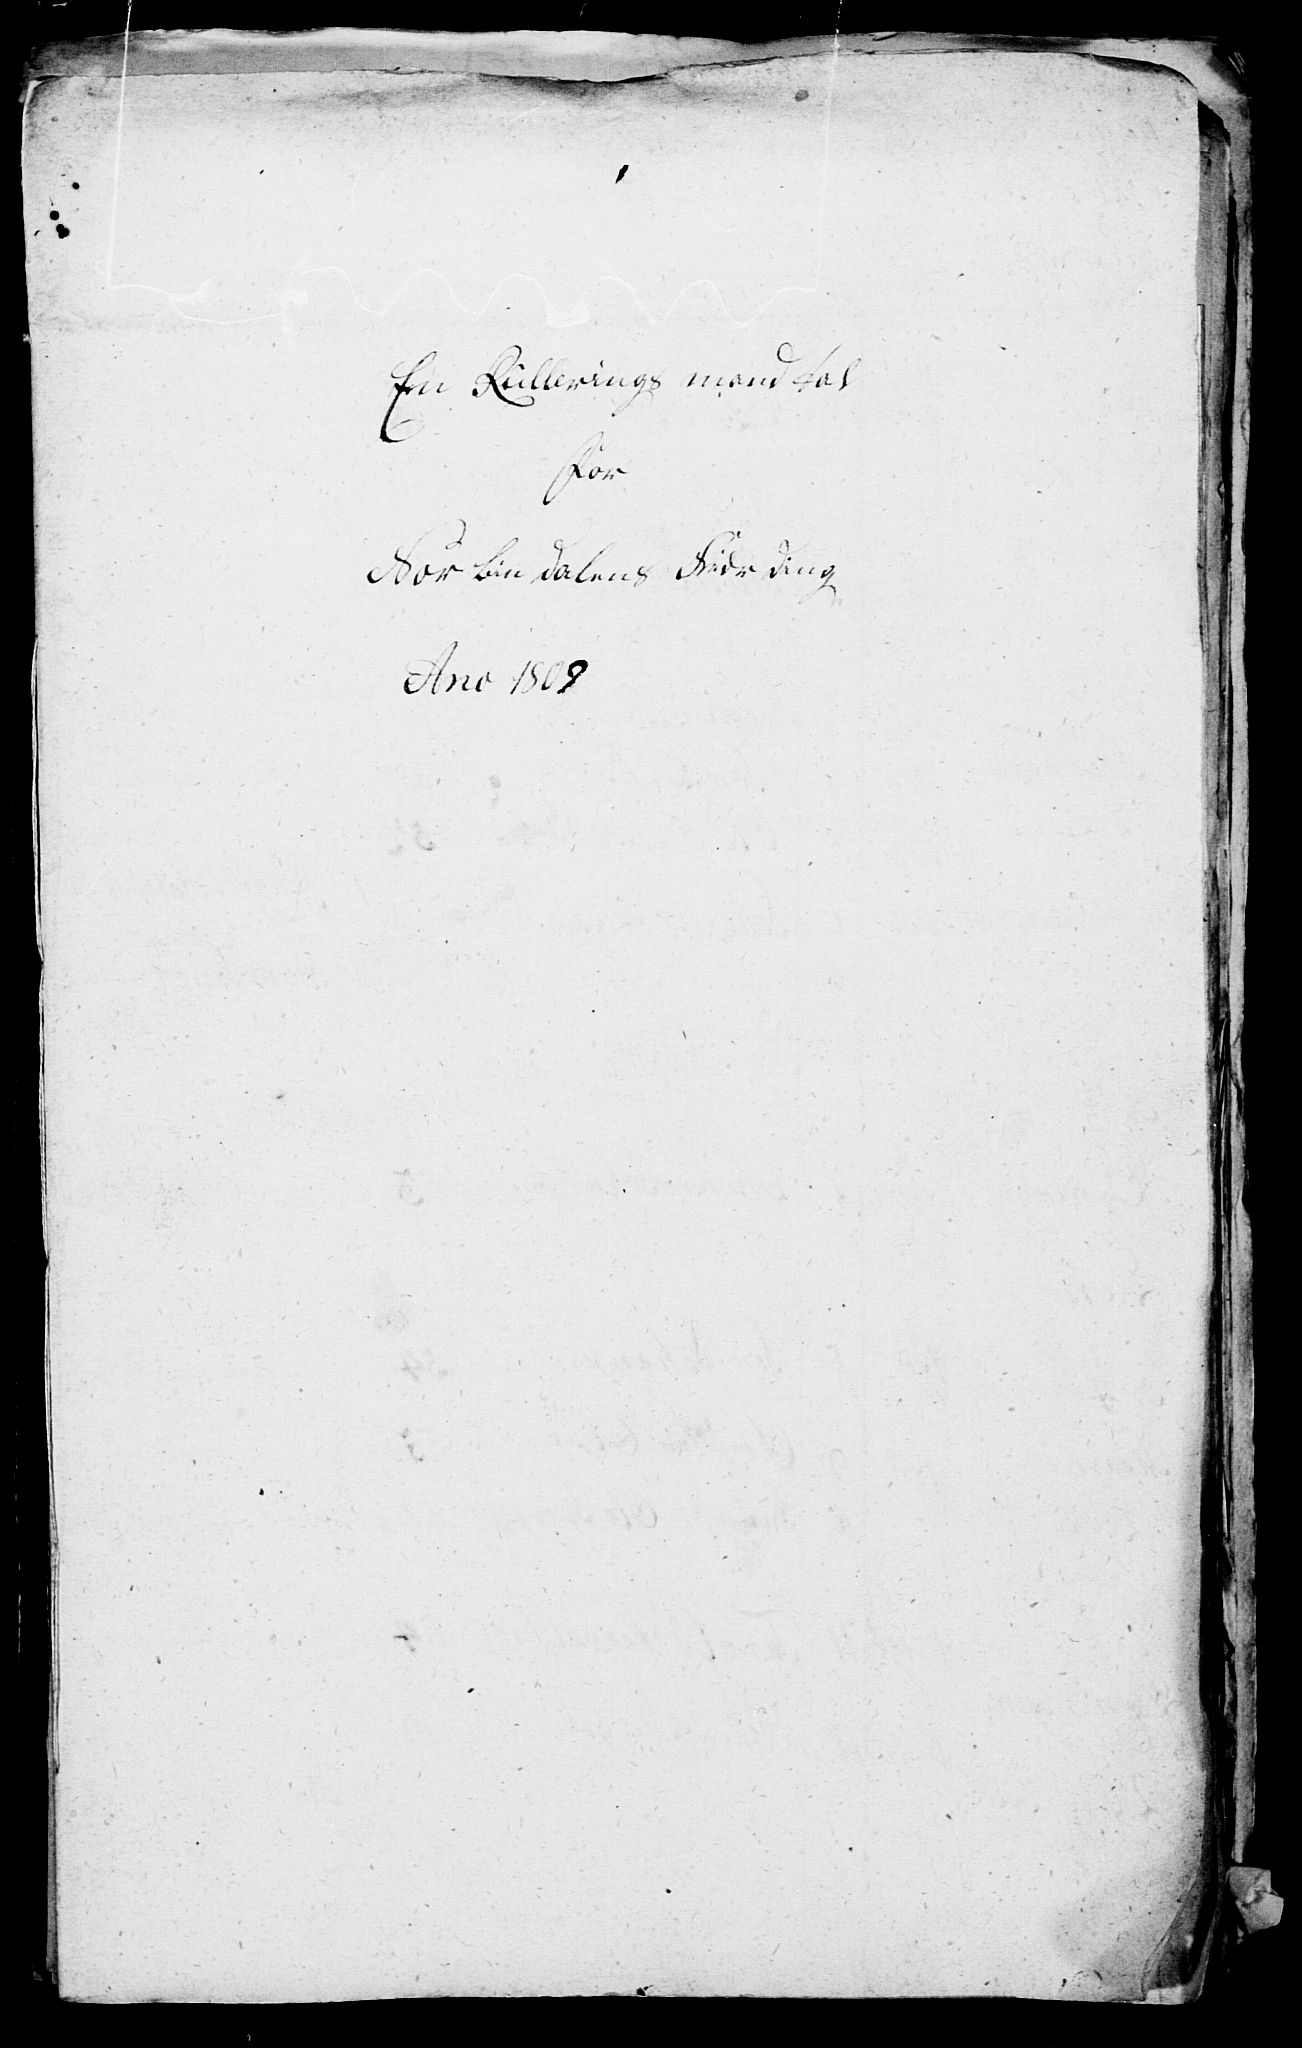 En Rullerings mand tal
for
Nor bin dalens Fierding
Ano 1809